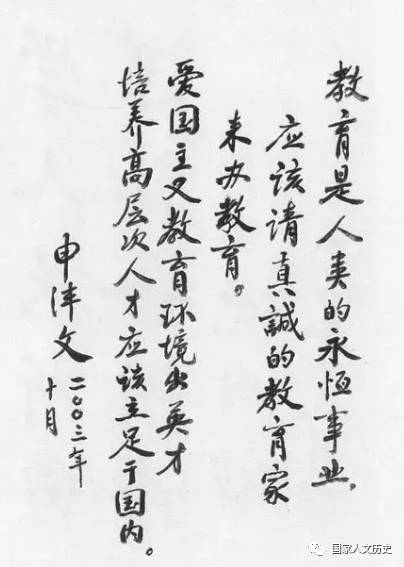 教育是人类的永恒事业，
应该请真誠的教育家
来办教育。
爱国主义教育环境出英才
培养高层次人才应该立足于国内。
申泮文
二〇〇三年
十月
国家人文历史